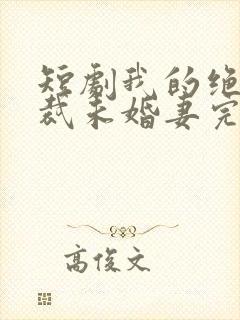 短剧我的绝
裁未婚妻完
高俊文